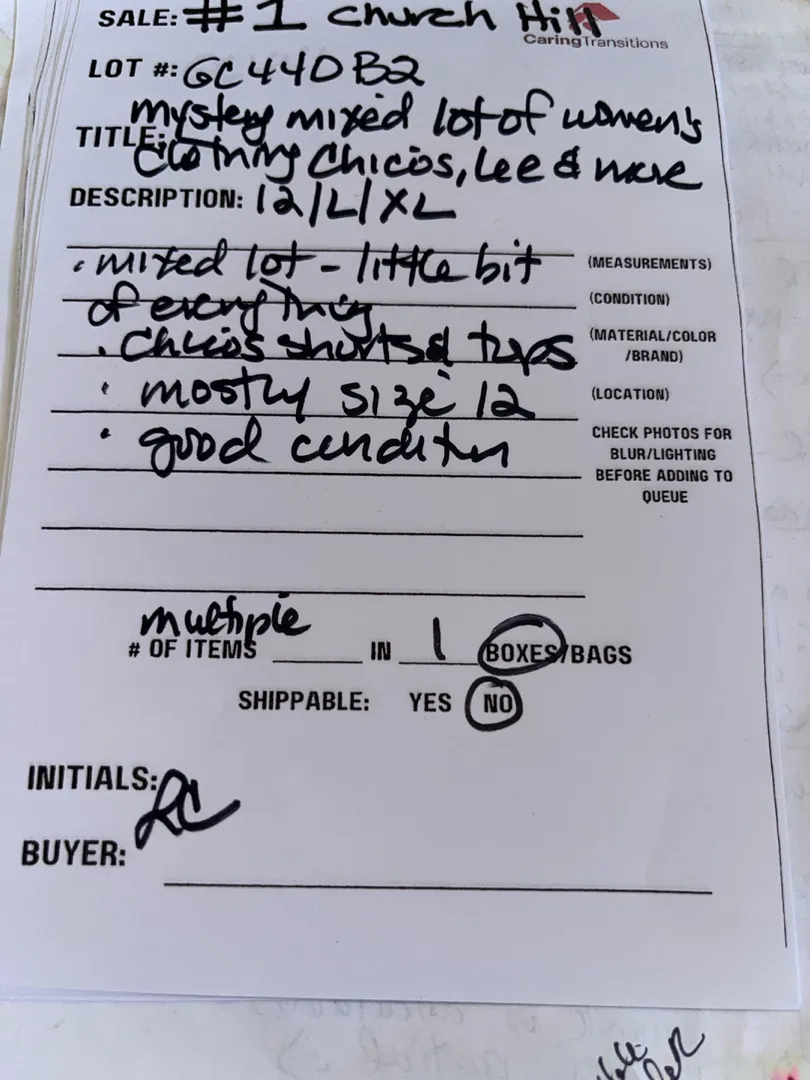 SALE: #1 Church Hill
CaringTransitions
LOT #: GC44DB2
mystery mixed lot of women's
TITLE: Clothing Chicos, Lee & more
DESCRIPTION: 12/L/XL
• mixed lot - little bit (MEASUREMENTS)
of everything (CONDITION)
• Chicos shorts & tops (MATERIAL/COLOR
/BRAND)
• mostly size 12 (LOCATION)
• good condition CHECK PHOTOS FOR
BLUR/LIGHTING
BEFORE ADDING TO
QUEUE
multiple
# OF ITEMS IN 1 BOXES/BAGS
SHIPPABLE: YES NO
INITIALS: RC
BUYER: